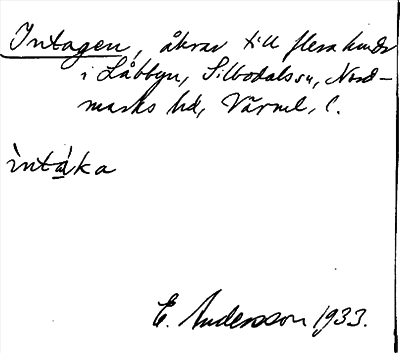 Intagen, åkrar till flera hundr
i Låbbyn, Silbodals sn, Nord-
marks hd, Värml, l.
ìntàka
E. Andersson 1933.